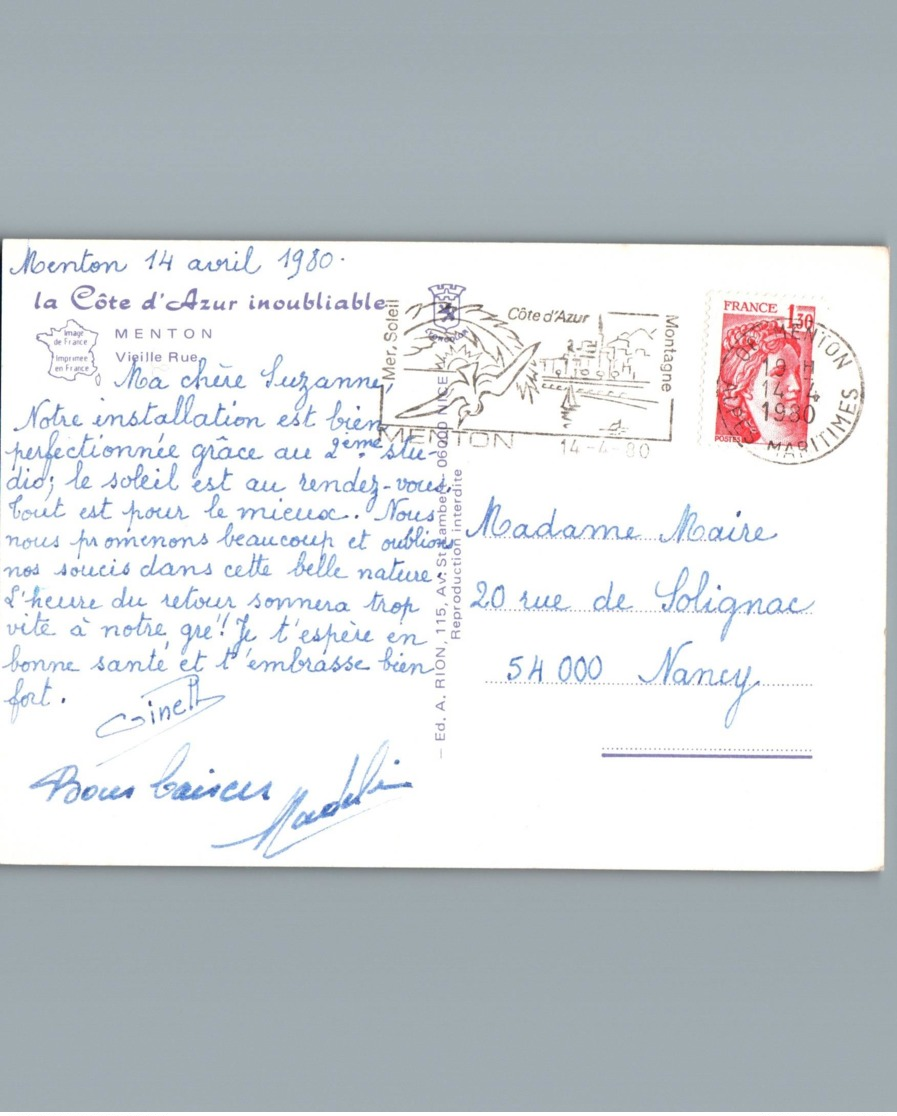 Menton 14 avril 1980.
la Côte d'Azur inoubliable
Image
de France
Imprimée
en France
MENTON
Vieille Rue
Ma chère Suzanne,
Notre installation est bien
perfectionnée grâce au 2ème stu-
dio; le soleil est au rendez-vous.
Tout est pour le mieux. Nous
nous promenons beaucoup et oublions
nos soucis dans cette belle nature.
L'heure du retour sonnera trop
vite à notre gré! Je t'espère en
bonne santé et t'embrasse bien
fort.
Ginett
Bons baisers
— Ed. A. RION, 115, Av. St-Lambert - 06000 NICE
Reproduction interdite
Mer, Soleil
Côte d'Azur
Montagne
MENTON
14-4-80
FRANCE
1,30
POSTES
MENTON
19 H
14-4
1980
MARITIMES
Madame Maire
20 rue de Solignac
54 000 Nancy